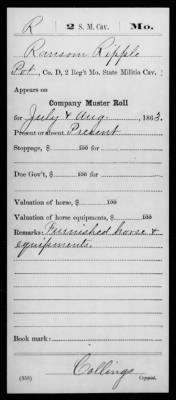 R 2 S. M. Cav. Mo.
Ransom Ripple
Pvt., Co. D, 2 Reg't Mo. State Militia Cav.
Appears on
Company Muster Roll
for July & Aug, 1863.
Present or absent Present
Stoppage, $ 100 for
Due Gov't, $ 100 for
Valuation of horse, $ 100
Valuation of horse equipments, $ 100
Remarks: Furnished horse &
equipments.
Book mark:
Collings
(358) Copyist.